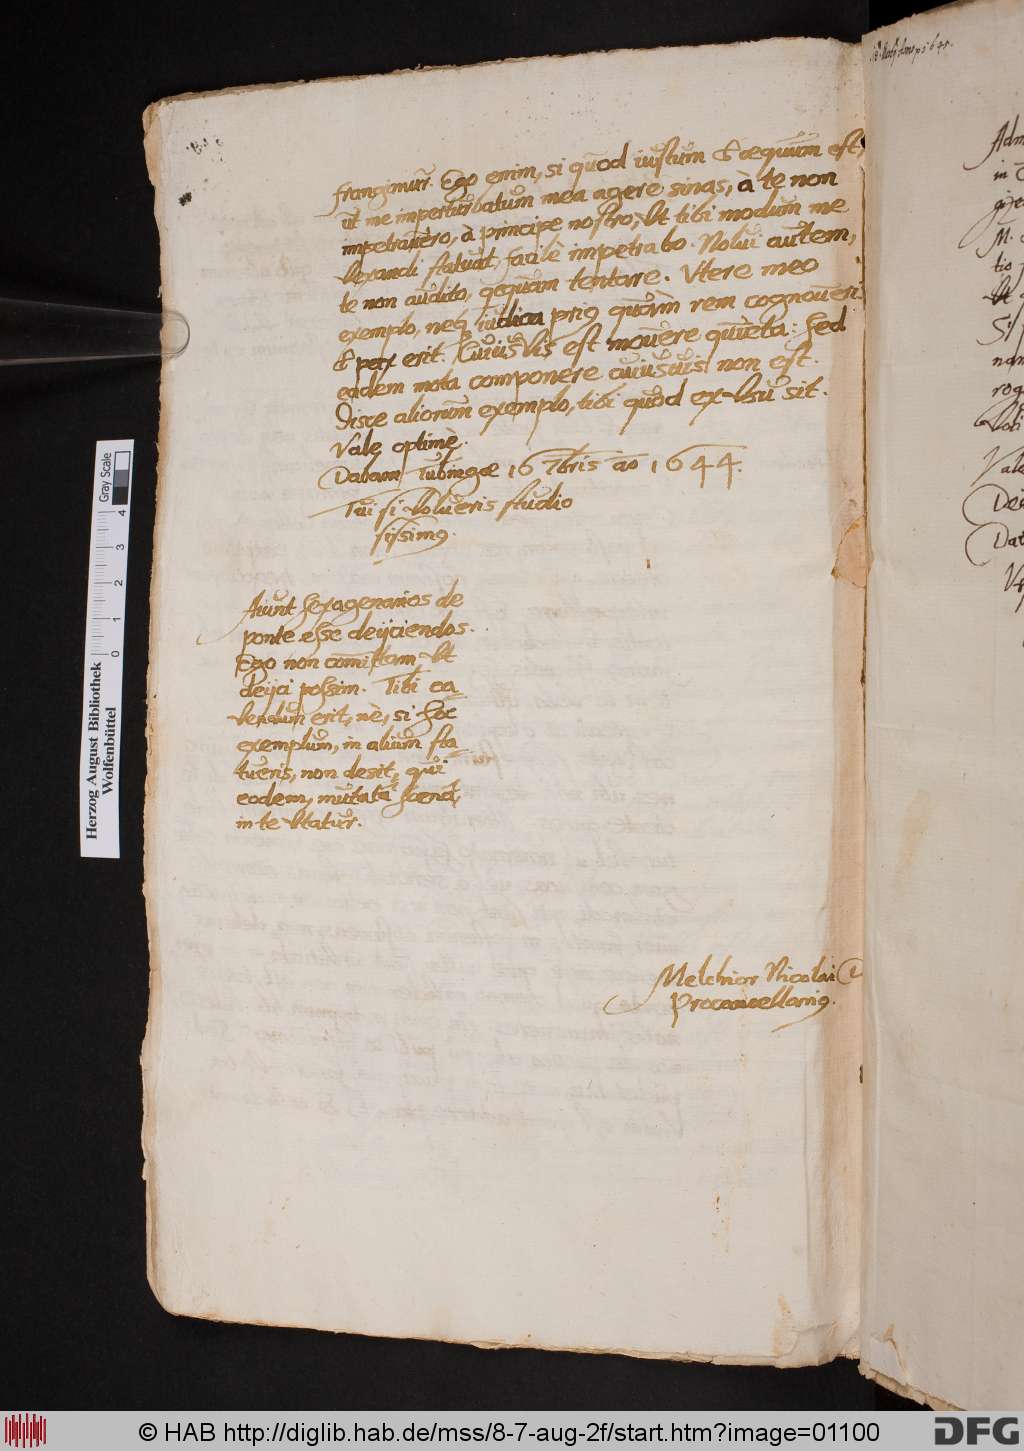 frangimur. Ego enim, si quod iustum & aequum est,
ut me imperturbatum mea agere sinas, à te non
impetravero, à principe nostro, vt tibi modum me
vexandi statuat, facilè impetrabo. Nolui autem,
te non audito, quequam tentare. Vtere meo
exemplo, neq iudica prius quàm rem cognoveris
& pax erit. Cuiusvis est movere quieta: Sed
eadem mota componere cuiusvis non est.
Disce aliorum exemplo, tibi quod ex vsu sit.
Vale optimè.
Dabam Tubingae 16 7bris ao 1644.
Tui si volueris studio
sissimus.
Aiunt sexagenarios de
ponte esse deijciendos.
Ego non comittam vt
deijci possim. Tibi ca-
vendum erit, nè, si hoc
exemplum, in alium sta-
tueris, non desit, qui
eodem, mutata scena,
in te vtatur.
Melchior Nicolai D
Procancellarius.
Adm
in
M.
tio
vt
Si
nam
rog
Vale
Dat
Herzog August Bibliothek
Wolfenbüttel
0 1 2 3 4
Gray Scale
© HAB http://diglib.hab.de/mss/8-7-aug-2f/start.htm?image=01100
DFG